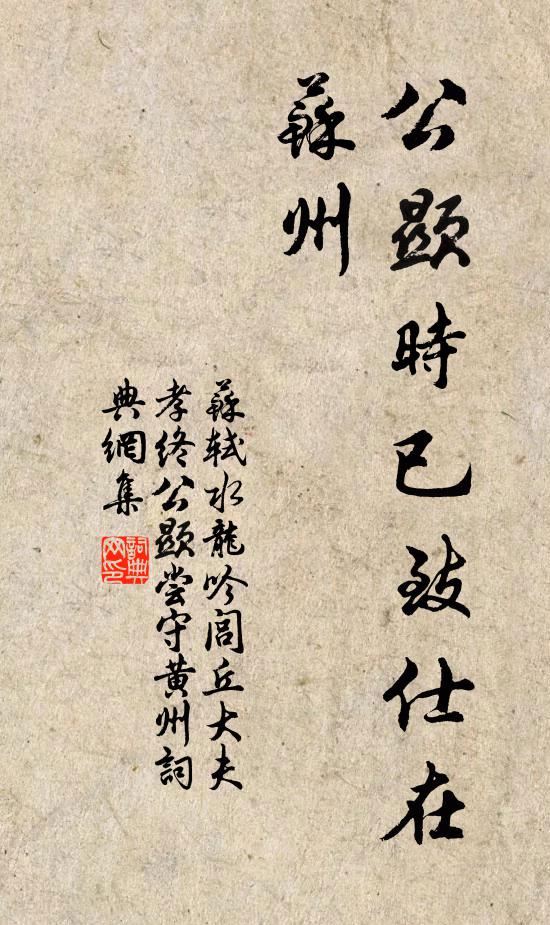 公顯時已致仕在
蘇州
蘇軾水龍吟閭丘大夫
孝終公顯嘗守黃州詞
典網集
詞典
网印